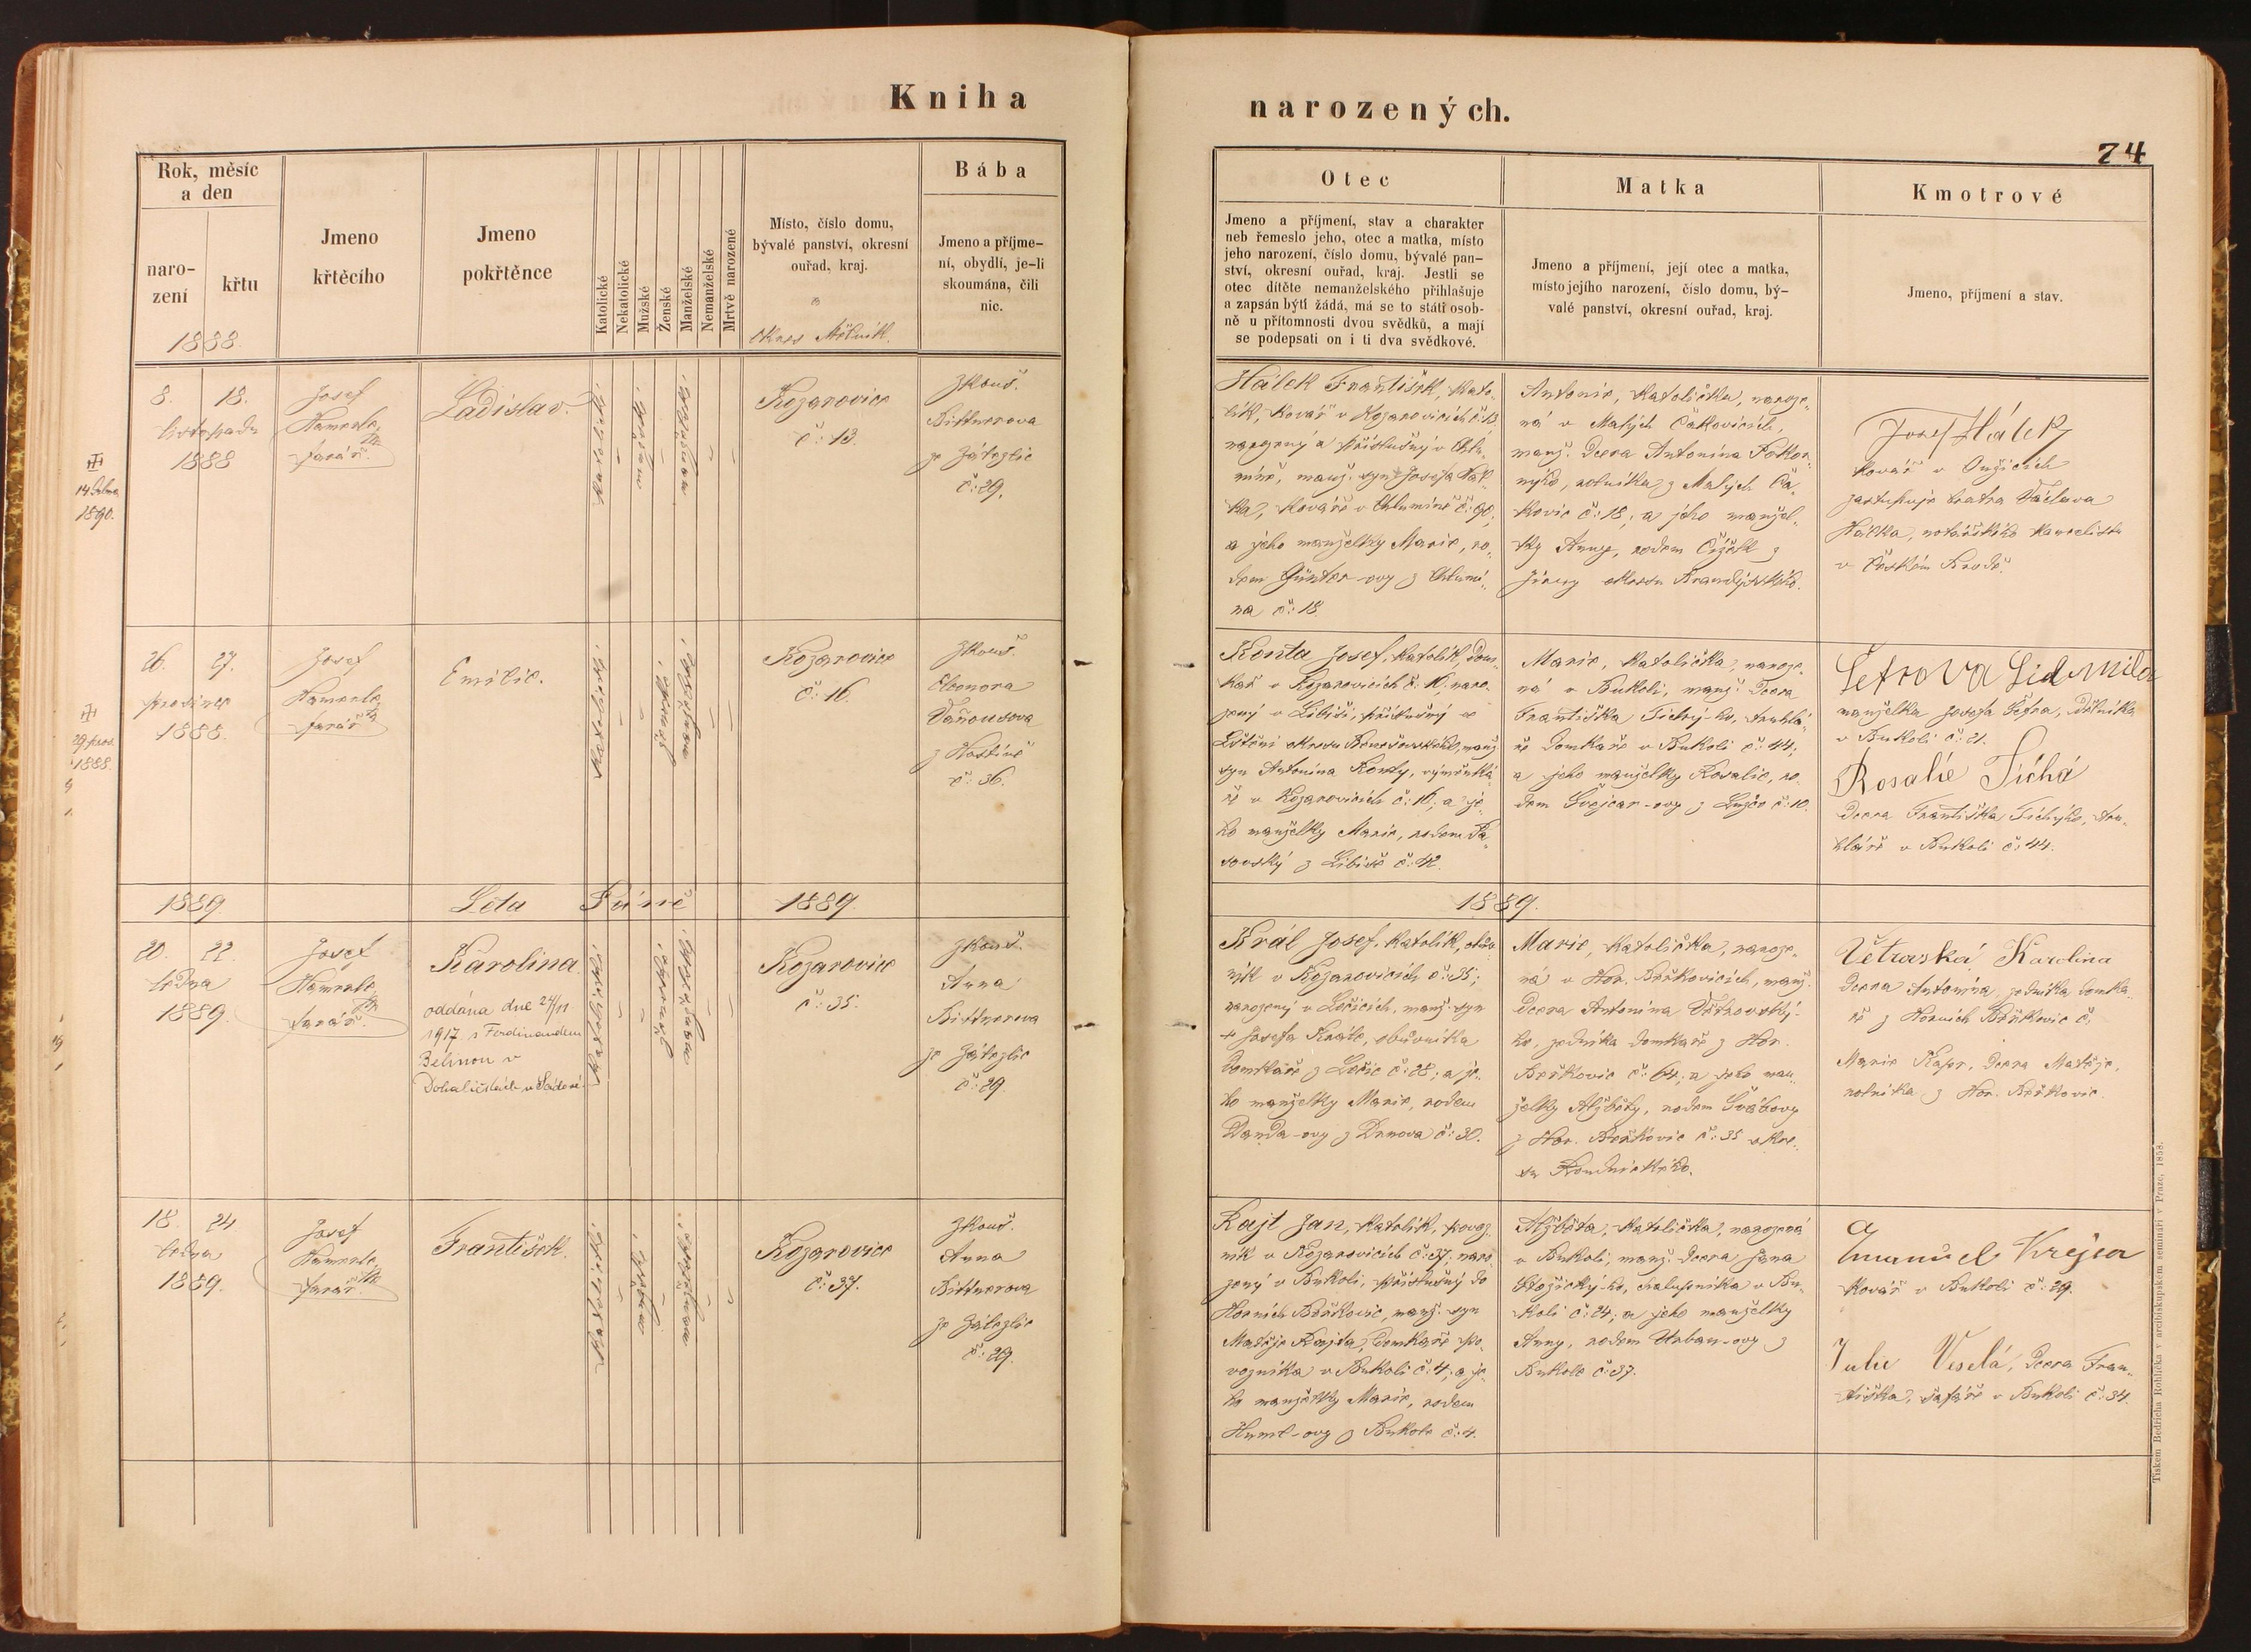 Kniha
narozených.
74
Rok, měsíc
a den
naro-
zení
křtu
1888.
Jmeno
křtěcího
Jmeno
pokřtěnce
Katolické
Nekatolické
Mužské
Ženské
Manželské
Nemanželské
Mrtvě narozené
Místo, číslo domu,
bývalé panství, okresní
ouřad, kraj.
okres Mělník.
Bába
Jmeno a příjme-
ní, obydlí, je-li
skoumána, čili
nic.
Otec
Jmeno a příjmení, stav a charakter
neb řemeslo jeho, otec a matka, místo
jeho narození, číslo domu, bývalé pan-
ství, okresní ouřad, kraj. Jestli se
otec dítěte nemanželského přihlašuje
a zapsán býti žádá, má se to státi osob-
ně u přítomnosti dvou svědků, a mají
se podepsati on i ti dva svědkové.
Matka
Jmeno a příjmení, její otec a matka,
místo jejího narození, číslo domu, bý-
valé panství, okresní ouřad, kraj.
Kmotrové
Jmeno, příjmení a stav.
14
1890.
8. 18.
listopadu
1888
Josef
farář.
Ladislav.
Kozarovice
č: 13.
Zkouš.
Bittnerova
ze Zálezlic
č: 29.
Hálek František, kato-
lík, kovář v Kozarovicích č: 13,
narozený a příslušný v Chlu-
míně, manž. syn Josefa Hál-
ka, kováře v Chlumíně č: 90,
a jeho manželky Marie, ro-
dem Günter-ovy z Chlumí-
na č: 18.
Antonie, katolička, naroze-
ná v Malých Čakovicích,
manž. dcera Antonína Pokor-
nýho, rolníka z Malých Ča-
kovic č: 18, a jeho manžel-
ky Anny, rodem Čížek z
Jirny okresu Brandýsského.
Josef Hálek
kovář v Onžicích
zastupuje bratra Václava
Hálka, notářského kancelistu
v Českém Brodě.
29 pros.
1888.
26. 27.
prosince
1888.
Josef
farář
Emilie.
Kozarovice
č: 16.
Zkouš.
Eleonora
Vaňousova
z Hostíně
č: 36.
Konta Josef, katolík, dom-
kař v Kozarovicích č: 16, naro-
zený v Libiši, příslušný do
Lštění okresu Benešovského, manž.
syn Antonína Konty, výměnká-
ře v Kozarovicích č: 16, a je-
ho manželky Marie, rodem Sa-
sovský z Libiše č: 42.
Marie, katolička, naroze-
ná v Bukoli, manž. dcera
Františka Tichý-ho, truhlá-
ře domkaře v Bukoli č: 44,
a jeho manželky Rosalie, ro-
dem Švejcar-ovy z Lužce č: 10.
Šetrova Lidmila
manželka Josefa Šetra, dělníka
v Bukoli č: 21.
Rosalie Tichá
dcera Františka Tichýho, tru-
hláře v Bukoli č: 44.
1889 Léta Páně 1889.
1889.
20. 22.
ledna
1889.
Josef
farář.
Karolina
oddána dne 24/11
1917 s Ferdinandem
Bělinou v
Dohaličkách u Sadové
Kozarovice
č: 35.
Zkouš.
Anna
Bittnerova
ze Zálezlic
č: 29.
Král Josef, katolík, obuv-
ník v Kozarovicích č: 35,
narozený v Ločicích, manž. syn
† Josefa Krále, obuvníka
domkáře z Ločic č: 28, a je-
ho manželky Marie, rodem
Danda-ovy z Drnova č: 30.
Marie, katolička, naroze-
ná v Hor. Beřkovicích, manž.
dcera Antonína Větrovský-
ho, zedníka domkaře z Hor.
Beřkovic č: 64, a jeho man-
želky Alžběty, rodem Švábovy
z Hor. Beřkovic č: 35 okre-
su Roudnického.
Větrovská Karolina
dcera Antonína, zedníka domka-
ře z Horních Beřkovic č.
Marie Kapr, dcera Matěje,
rolníka z Hor. Beřkovic.
18. 24
ledna
1889.
Josef
farář
František.
Kozarovice
č: 37.
Zkouš.
Anna
Bittnerova
ze Zálezlic
č: 29.
Rajt Jan, katolík, povoz-
ník v Kozarovicích č: 37, naro-
zený v Bukoli, příslušný do
Horních Beřkovic, manž. syn
Matěje Rajta, domkaře po-
vozníka v Bukoli č: 4, a je-
ho manželky Marie, rodem
Huml-ovy z Bukole č: 4.
Alžběta, katolička, narozená
v Bukoli, manž. dcera Jana
chalupníka v Bu-
koli č: 24, a jeho manželky
Anny, rodem Urban-ovy z
Bukole č: 37.
Emanuel Krejza
kovář v Bukoli č: 29.
Julie Veselá, dcera Fran-
tiška, šafáře v Bukoli č: 34.
Tiskem Bedřicha Rohlíčka v arcibiskupském semináři v Praze, 1858.